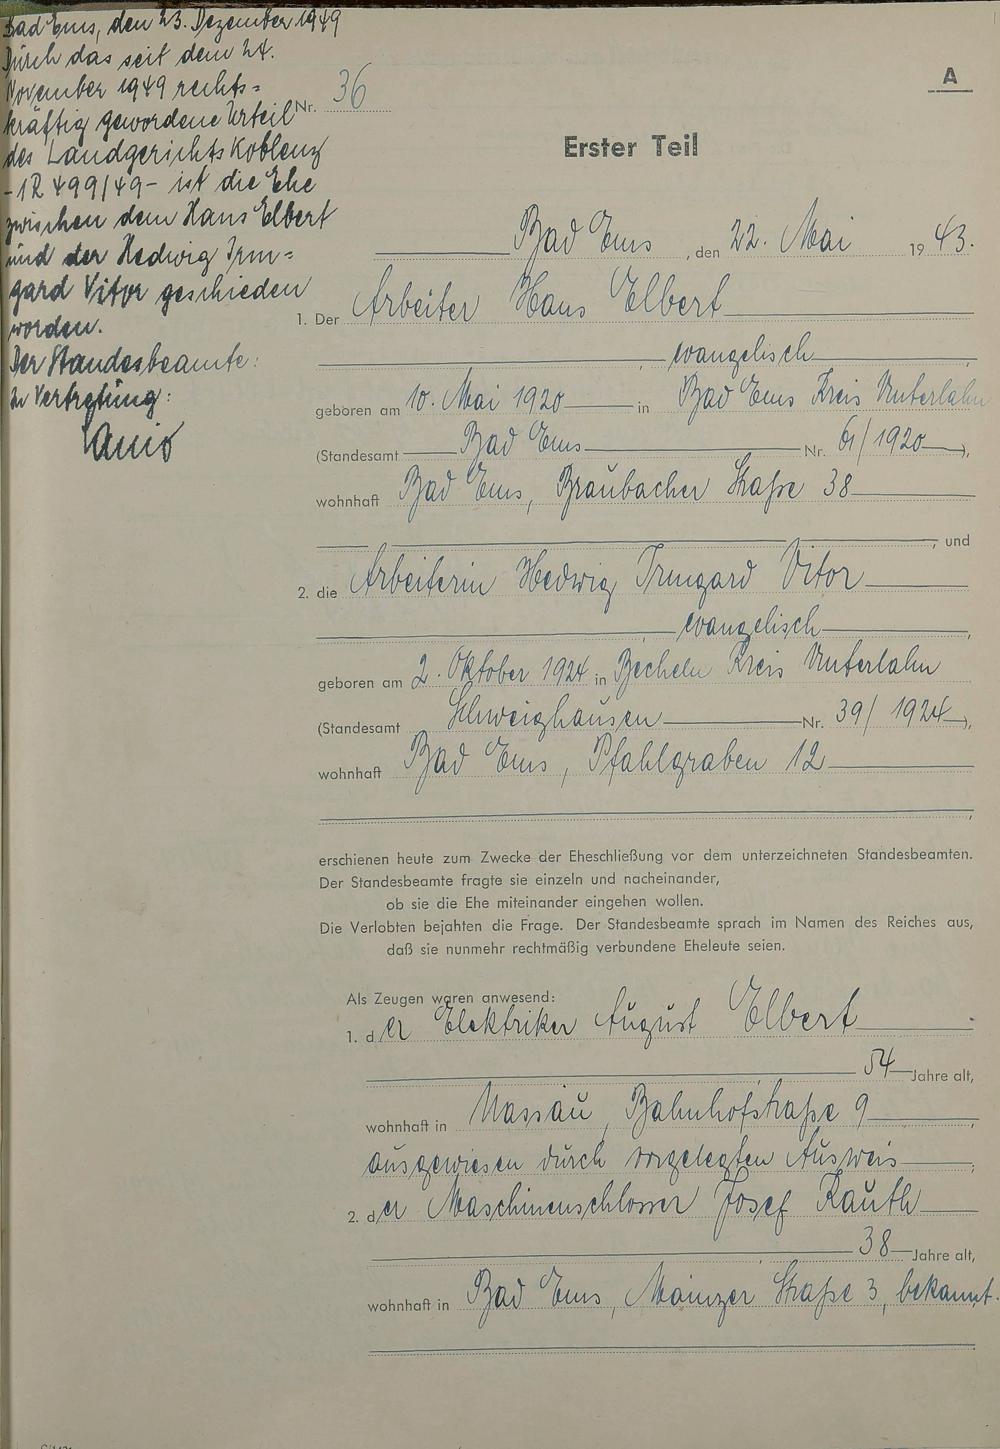 Bad Ems, den 23. Dezember 1949
Durch das seit dem 24.
November 1949 rechts=
kräftig gewordene Urteil
des Landgerichts Koblenz
- 1R 499/49 - ist die Ehe
zwischen dem Hans Elbert
und der Hedwig Irm=
gard Vitor geschieden
worden.
Der Standesbeamte:
In Vertretung:
A
Nr. 36
Erster Teil
Bad Ems, den 22. Mai 1943.
1. Der Arbeiter Hans Elbert
, evangelisch,
geboren am 10. Mai 1920 in Bad Ems Kreis Unterlahn
(Standesamt Bad Ems Nr. 61/1920),
wohnhaft Bad Ems, Braubacher Straße 38
, und
2. die Arbeiterin Hedwig Irmgard Vitor
, evangelisch,
geboren am 2. Oktober 1924 in Becheln Kreis Unterlahn
(Standesamt Schweighausen Nr. 39/1924),
wohnhaft Bad Ems, Pfahlgraben 12
,
erschienen heute zum Zwecke der Eheschließung vor dem unterzeichneten Standesbeamten.
Der Standesbeamte fragte sie einzeln und nacheinander,
ob sie die Ehe miteinander eingehen wollen.
Die Verlobten bejahten die Frage. Der Standesbeamte sprach im Namen des Reiches aus,
daß sie nunmehr rechtmäßig verbundene Eheleute seien.
Als Zeugen waren anwesend:
1. der Elektriker August Elbert
54 Jahre alt,
wohnhaft in Nassau, Bahnhofstraße 9,
ausgewiesen durch vorgelegten Ausweis;
2. der Maschinenschlosser Josef Kauth
, 38 Jahre alt,
wohnhaft in Bad Ems, Mainzer Straße 3, bekannt.